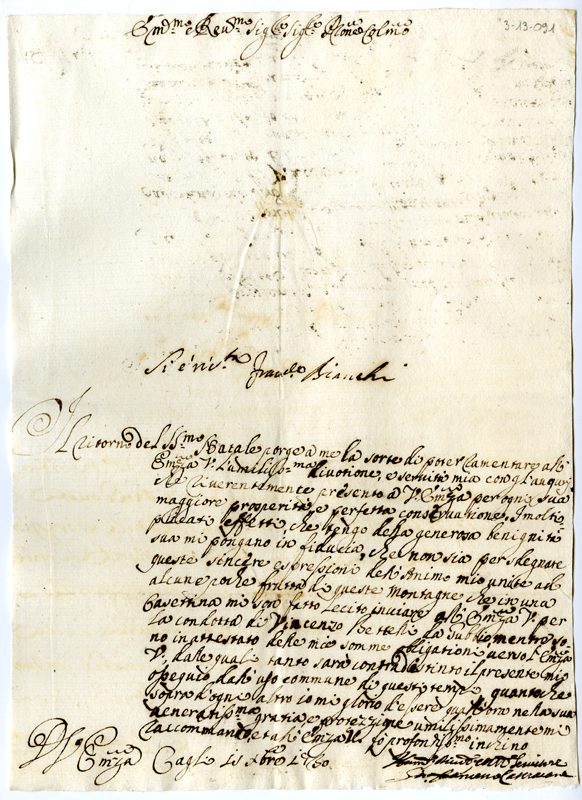 3-13-091
Em.mo e Rev.mo Sig.re Sig.re P.rone Col.mo
Si è vis.ta Franc.co Bianchi
Il ritorno del SS.mo Natale porge à me la sorte di poter ramentare all'
Em.za V. l'umiliss.ma divotione, e servitù mia con gl'auguri
che riverentemente presento à V. Em.za per ogni sua
maggiore prosperità, e perfetta conservatione. I molti
effetti, che tengo della generosa benignità
sua mi pongano in fiducia, che non sia per sdegnare
queste sincere espressioni dell'Animo mio unite ad
alcune poche frutta di queste montagne che in una
Casertina mi son fatto lecito inviare all'Em.za V. per
la condotta di Vincenzo Bettelli
in attestato delle mie somme obligationi verso l'Em.za
V. dalle quali tanto sarà contradistinto il presente mio
ossequio dall'uso commune di questi tempi quanto che
sopra d'ogni altro io mi glorio d'essere qual'ora nella sua
generosiss.ma gratia, e protezzione umilissimamente mi
raccommando, et all'Em.za V. fò profondiss.mo inchino
Di V. Em.za Cagli